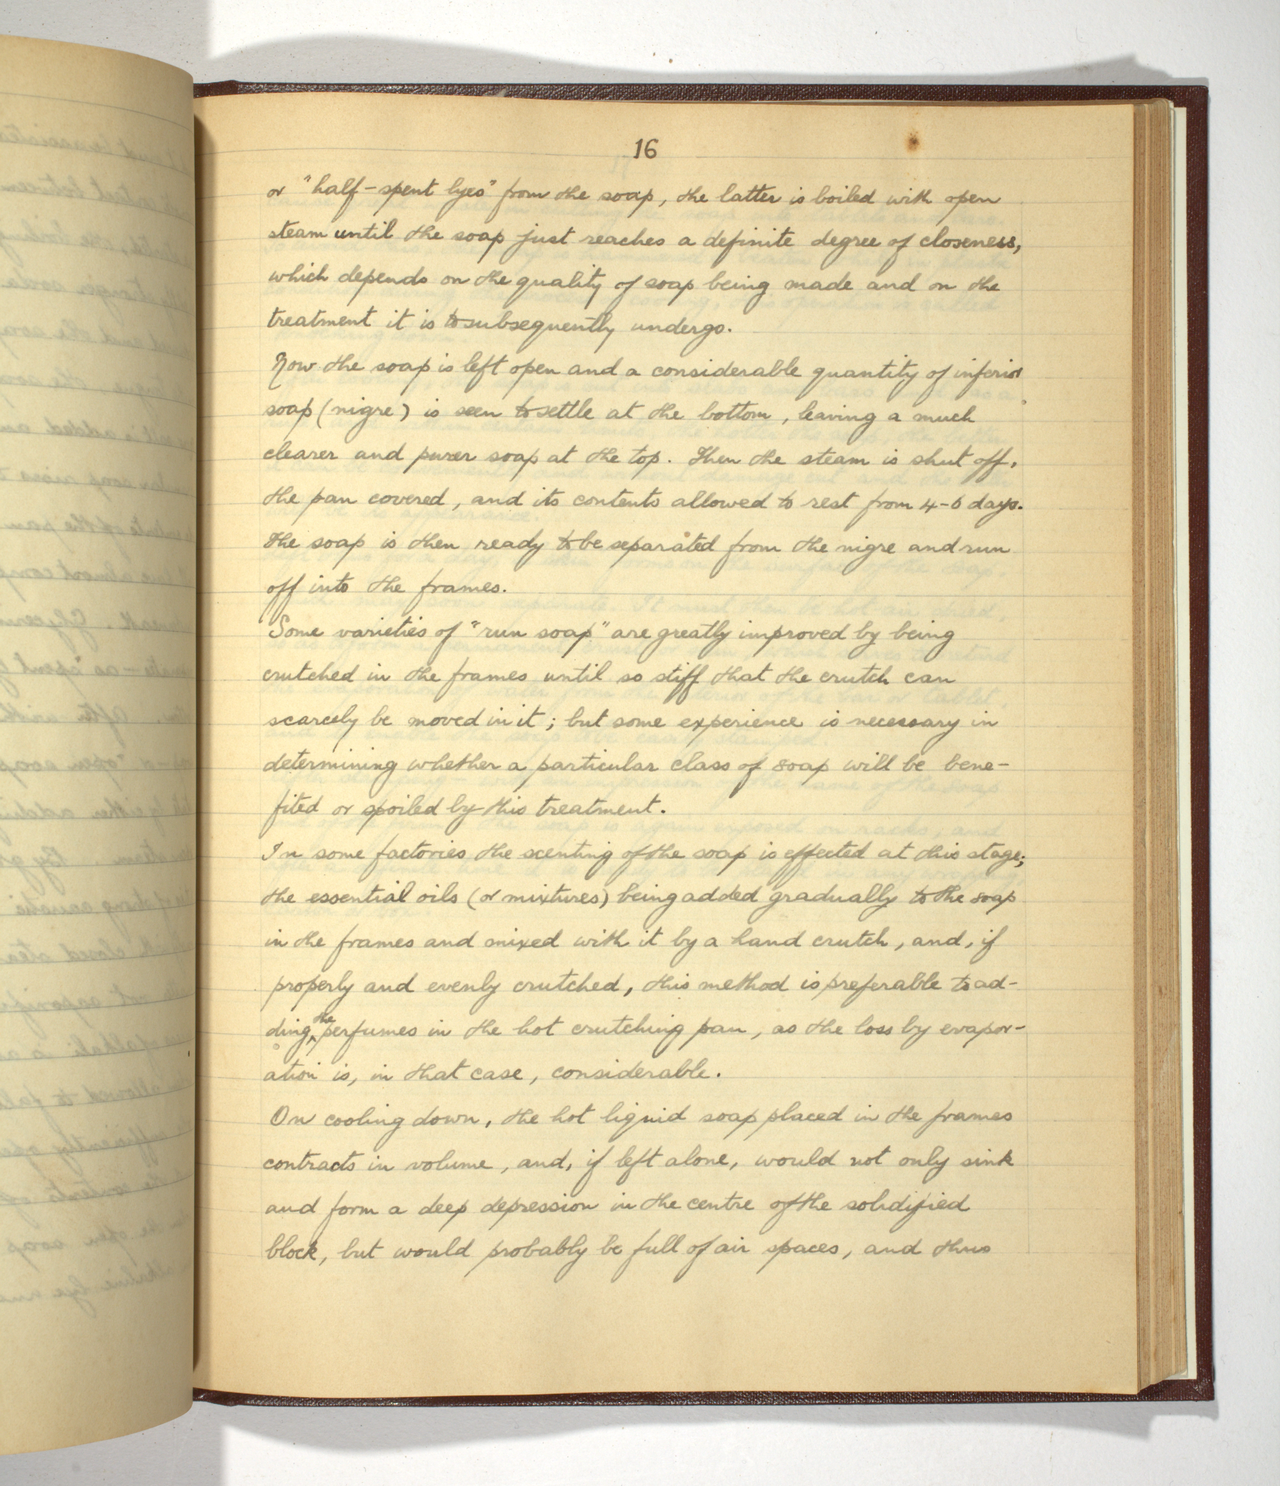 16
or "half-spent lyes" from the soap, the latter is boiled with open
steam until the soap just reaches a definite degree of closeness,
which depends on the quality of soap being made and on the
treatment it is to subsequently undergo.
Now the soap is left open and a considerable quantity of inferior
soap (nigre) is seen to settle at the bottom, leaving a much
clearer and purer soap at the top. Then the steam is shut off,
the pan covered, and its contents allowed to rest from 4-6 days.
The soap is then ready to be separated from the nigre and run
off into the frames.
Some varieties of "run soap" are greatly improved by being
crutched in the frames until so stiff that the crutch can
scarcely be moved in it; but some experience is necessary in
determining whether a particular class of soap will be bene-
fited or spoiled by this treatment.
In some factories the scenting of the soap is effected at this stage;
the essential oils (or mixtures) being added gradually to the soap
in the frames and mixed with it by a hand crutch, and, if
properly and evenly crutched, this method is preferable to ad-
ding the perfumes in the hot crutching pan, as the loss by evapor-
ation is, in that case, considerable.
On cooling down, the hot liquid soap placed in the frames
contracts in volume, and, if left alone, would not only sink
and form a deep depression in the centre of the solidified
block, but would probably be full of air spaces, and thus